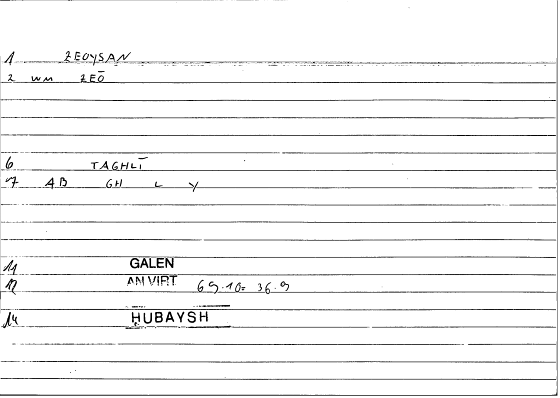 1 ΖΕΟΥSAN
2 WM ΖΕŌ
6 TAGHLĪ
7 AB GH L Y
11 GALEN
12 AN VIRT 69.10= 36.9
14 ḤUBAYSH